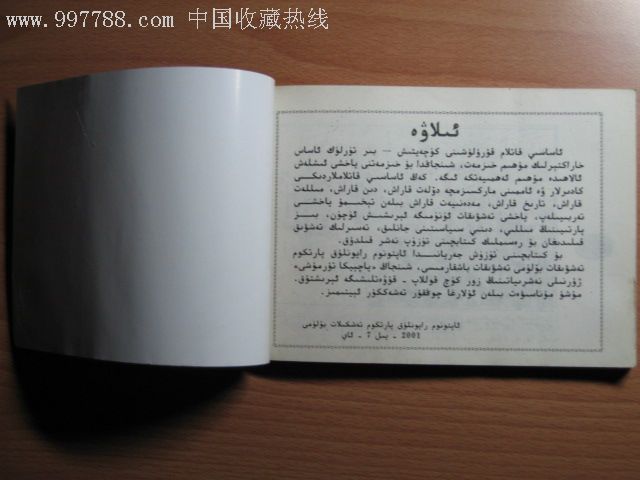 www.997788.com 中国收藏热线
ئىلاۋە
ئاساسىي قاتلام قۇرۇلۇشىنى كۈچەيتىش — بىر تۈرلۈك ئاساس
خاراكتېرلىك مۇھىم خىزمەت، شىنجاڭدا بۇ خىزمەتنى ياخشى ئىشلەش
ئالاھىدە مۇھىم ئەھمىيەتكە ئىگە. كەڭ ئاساسىي قاتلاملاردىكى
كادىرلار ۋە ئاممىنى ماركسىزمچە دۆلەت قاراش، دىن قاراش، مىللەت
قاراش، تارىخ قاراش، مەدەنىيەت قاراش بىلەن تېخىمۇ ياخشى
تەربىيىلەپ، ياخشى تەشۋىقات ئۈنۈمىگە ئېرىشىش ئۈچۈن، بىز
پارتىيىنىڭ مىللىي، دىنىي سىياسىتىنى جانلىق، تەسىرلىك تەشۋىق
قىلىدىغان بۇ رەسىملىك كىتابچىنى تۈزۈپ نەشر قىلدۇق.
بۇ كىتابچىنى تۈزۈش جەريانىدا ئاپتونوم رايونلۇق پارتكوم
تەشۋىقات بۆلۈمى تەشۋىقات باشقارمىسى، شىنجاڭ «پارچىكا تۇرمۇشى»
ژۇرنىلى نەشرىياتىنىڭ زور كۈچ قوللاپ - قۇۋۋەتلىشىگە ئېرىشتۇق.
مۇشۇ مۇناسىۋەت بىلەن ئۇلارغا چوڭقۇر تەشەككۈر ئېيتىمىز.
ئاپتونوم رايونلۇق پارتكوم تەشكىلات بۆلۈمى
2001 - يىل 7 - ئاي